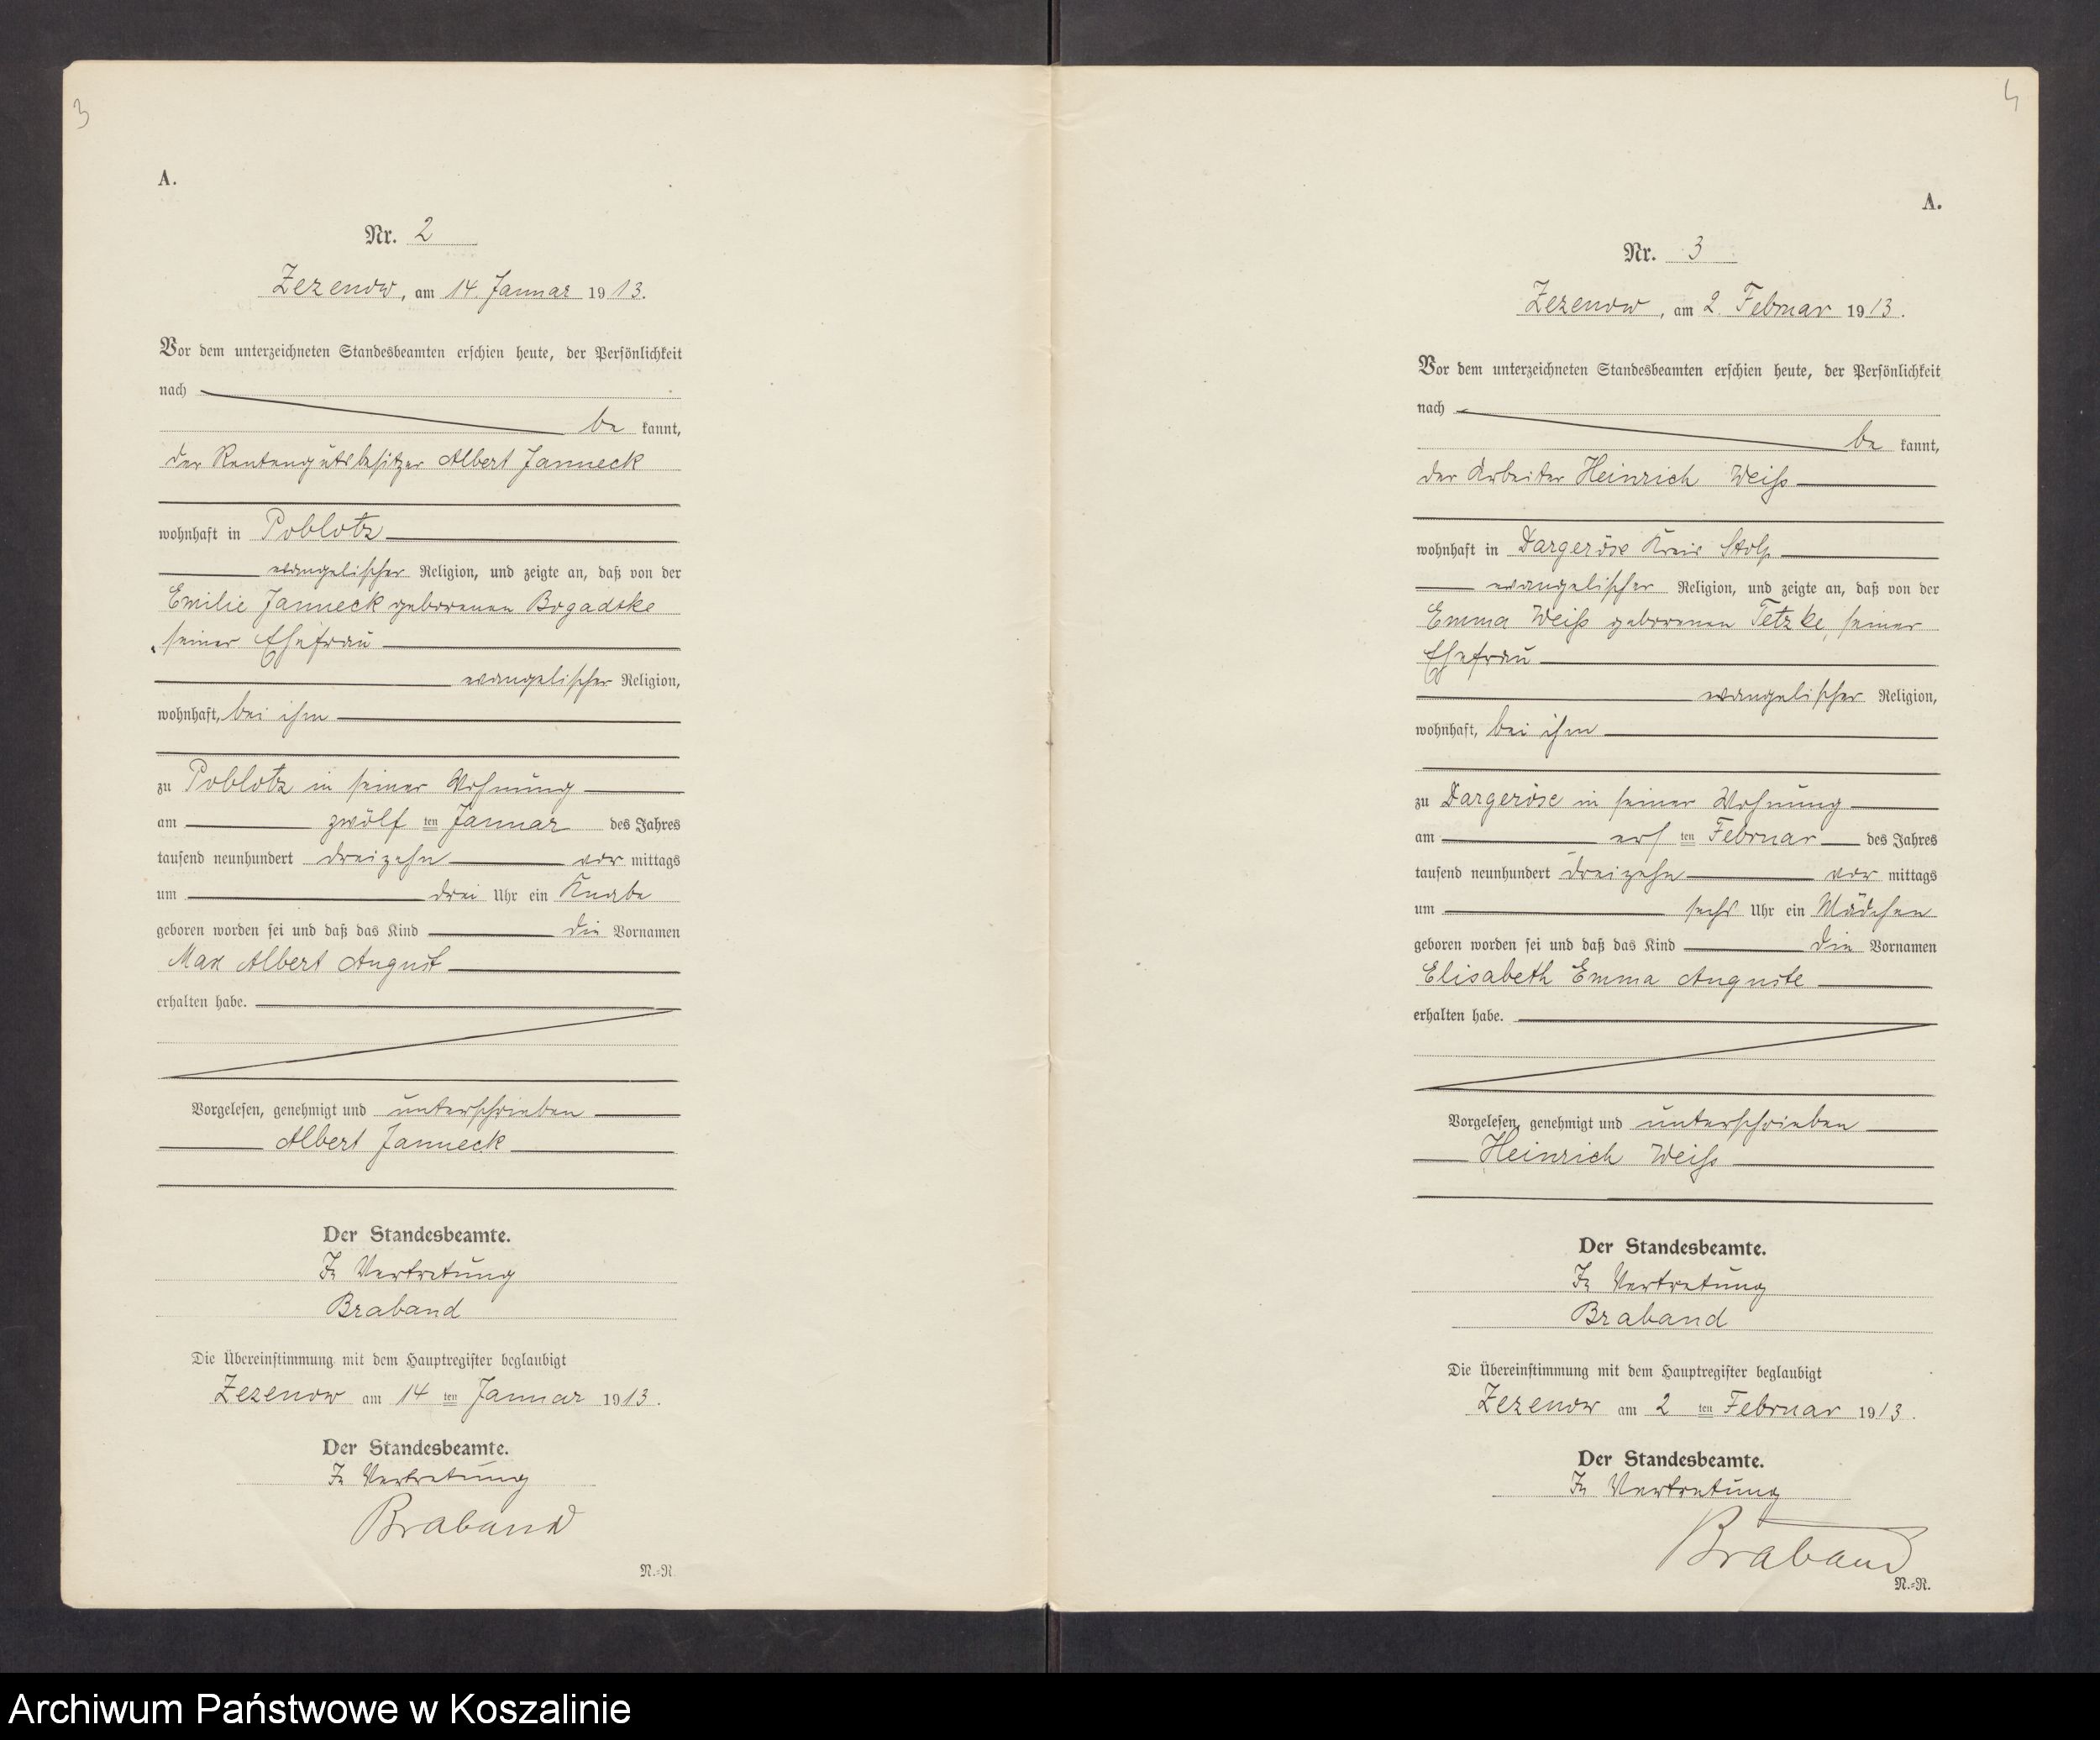 3
A.
Nr. 2
Zezenow, am 14. Januar 1913.
Vor dem unterzeichneten Standesbeamten erschien heute, der Persönlichkeit
nach
be kannt,
der Rentengutsbesitzer Albert Janneck
wohnhaft in Poblotz
evangelischer Religion, und zeigte an, daß von der
Emilie Janneck geborenen Bogadtke
seiner Ehefrau
evangelischer Religion,
wohnhaft, bei ihm
zu Poblotz in seiner Wohnung
am zwölf ten Januar des Jahres
tausend neunhundert dreizehn vor mittags
um drei Uhr ein Knabe
geboren worden sei und daß das Kind die Vornamen
Max Albert August
erhalten habe.
Vorgelesen, genehmigt und unterschrieben
Albert Janneck
Der Standesbeamte.
In Vertretung
Braband
Die Übereinstimmung mit dem Hauptregister beglaubigt
Zezenow am 14 ten Januar 1913.
Der Standesbeamte.
In Vertretung
Braband
N.=R.
4
A.
Nr. 3
Zezenow, am 2. Februar 1913.
Vor dem unterzeichneten Standesbeamten erschien heute, der Persönlichkeit
nach
be kannt,
der Arbeiter Heinrich Weiß
wohnhaft in Dargeröse Kreis Stolp
evangelischer Religion, und zeigte an, daß von der
Emma Weiß geborenen Tetzke, seiner
Ehefrau
evangelischer Religion,
wohnhaft, bei ihm
zu Dargeröse in seiner Wohnung
am ers ten Februar des Jahres
tausend neunhundert dreizehn vor mittags
um sechs Uhr ein Mädchen
geboren worden sei und daß das Kind die Vornamen
Elisabeth Emma Auguste
erhalten habe.
Vorgelesen, genehmigt und unterschrieben
Heinrich Weiß
Der Standesbeamte.
In Vertretung
Braband
Die Übereinstimmung mit dem Hauptregister beglaubigt
Zezenow am 2 ten Februar 1913.
Der Standesbeamte.
In Vertretung
Braband
N.=R.
Archiwum Państwowe w Koszalinie